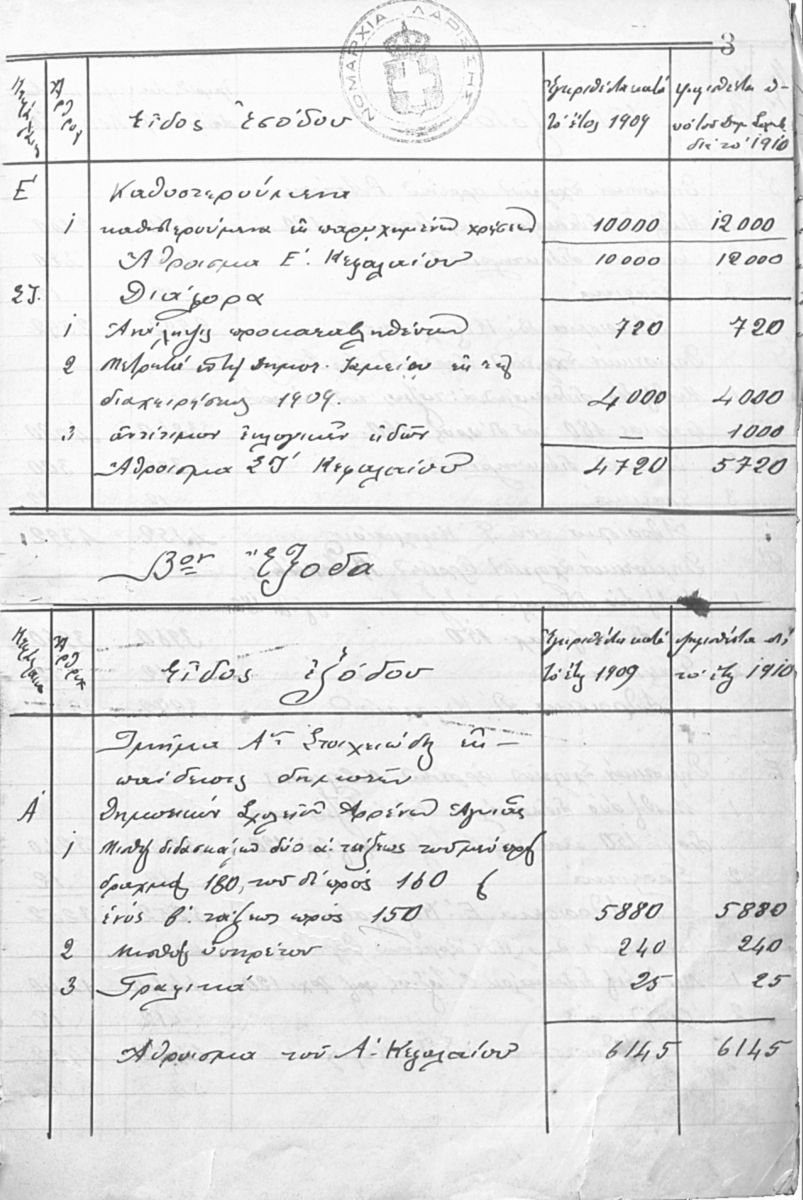 3
ΝΟΜΑΡΧΙΑ ΛΑΡΙΣΣΗΣ
Κεφάλαιον Ἄρθρον Εἶδος Ἐσόδου Ἐγκριθέντα κατὰ τὸ ἔτος 1909 ψηφισθέντα ὑπὸ τοῦ Δημ. Συμβ. διὰ τὸ 1910
Ε΄ Καθυστερούμενα
1 καθυστερούμενα ἐκ παρῳχημένων χρήσεων 10000 12000
Ἄθροισμα Ε΄. Κεφαλαίου 10000 12000
ΣΤ. Διάφορα
1 Ἀνάληψις προκαταβληθέντων 720 720
2 Μετρητὰ ἐν τῷ Δημοτ. Ταμείῳ ἐκ τῆς
διαχειρήσεως 1909. 4000 4000
3 ἀντίτιμον ἐκλογικῶν εἰδῶν — 1000
Ἄθροισμα ΣΤ΄ Κεφαλαίου 4720 5720
Βον Ἔξοδα
Κεφάλαιον Ἄρθρον Εἶδος Ἐξόδου Ἐγκριθέντα κατὰ τὸ ἔτος 1909 ψηφισθέντα διὰ τὸ ἔτος 1910
Τμῆμα Α΄ Στοιχειώδης ἐκ-
παίδευσις δημοτῶν
Α΄ Δημοτικὸν Σχολεῖον Ἀρρένων Ἁγυιᾶς
1 Μισθὸς διδασκάλων δύο α΄. τάξεως τοῦ μὲν πρὸς
δραχμὰς 180, τοῦ δὲ πρὸς 160 ς
ἑνὸς β΄. τάξεως πρὸς 150 5880 5880
2 Μισθὸς ὑπηρέτου 240 240
3 Γραφικά 25 25
Ἄθροισμα τοῦ Α΄. Κεφαλαίου 6145 6145